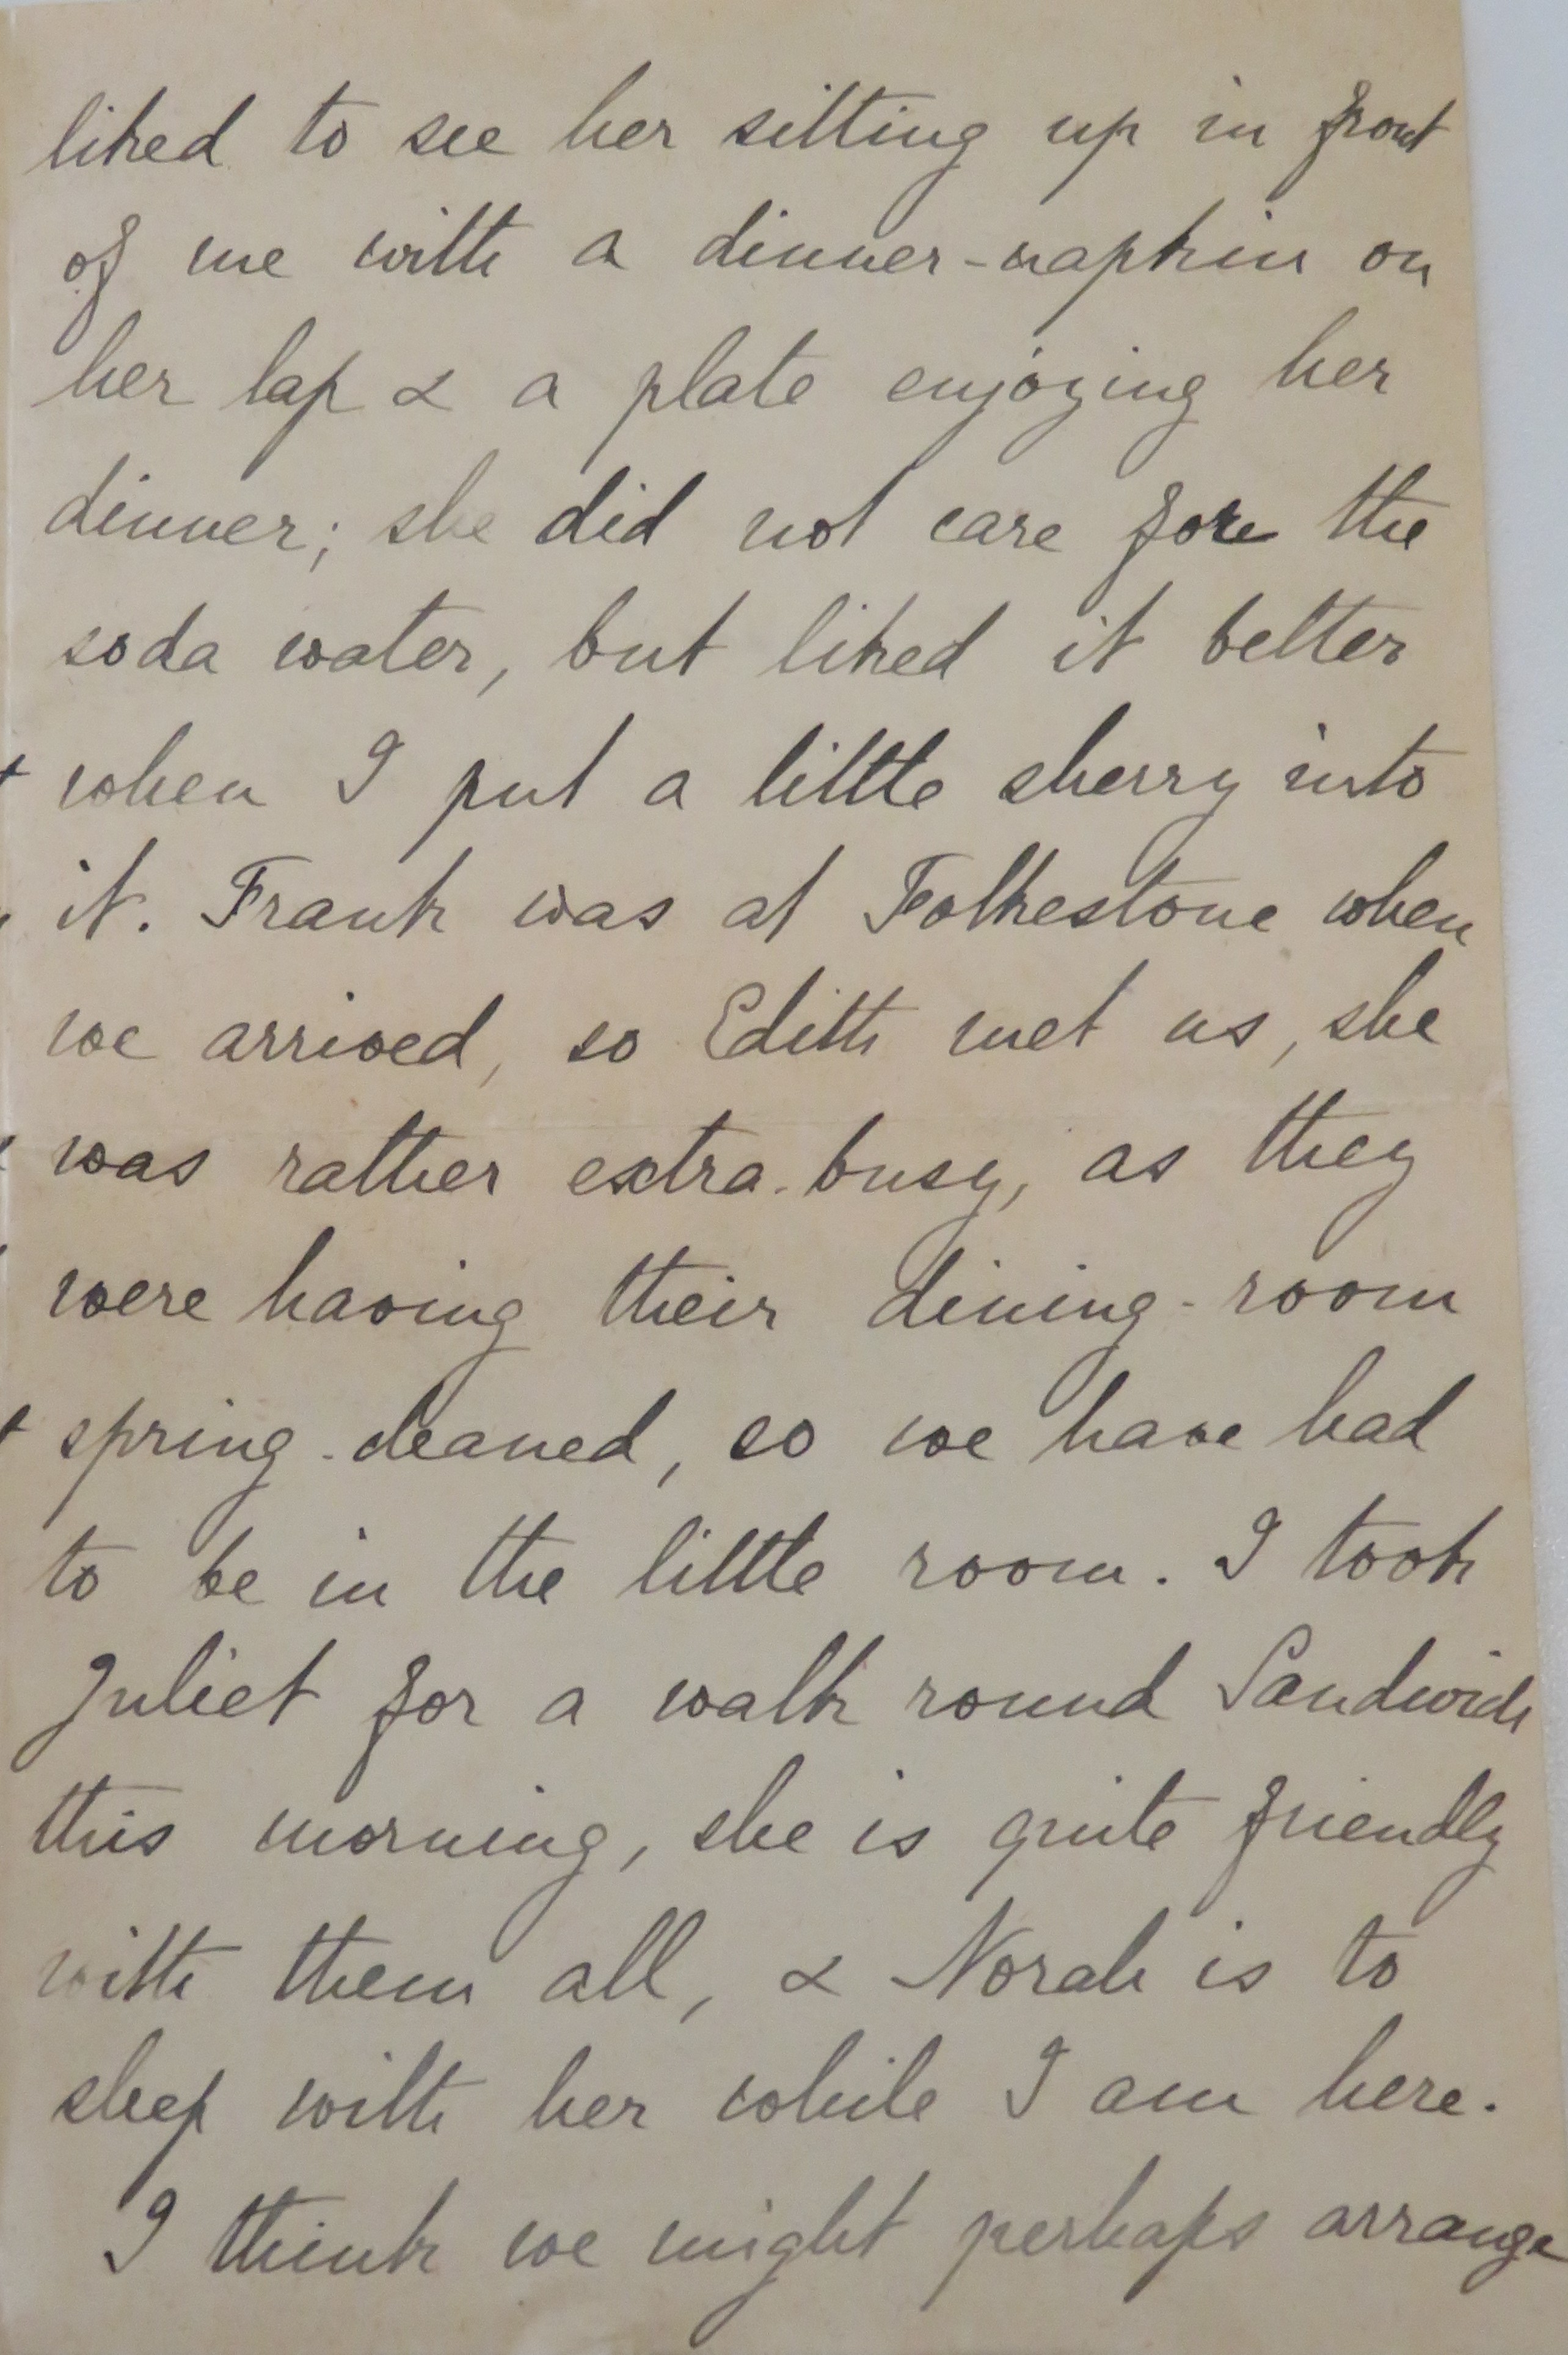 liked to see her sitting up in front
of me with a dinner-napkin on
her lap & a plate enjoying her
dinner; she did not care for the
soda water, but liked it better
when I put a little sherry into
it. Frank was at Folkestone when
we arrived, so Edith met us, she
was rather extra-busy, as they
were having their dining-room
spring-cleaned, so we have had
to be in the little room. I took
Juliet for a walk round Sandwich
this morning, she is quite friendly
with them all, & Norah is to
sleep with her while I am here.
I think we might perhaps arrange